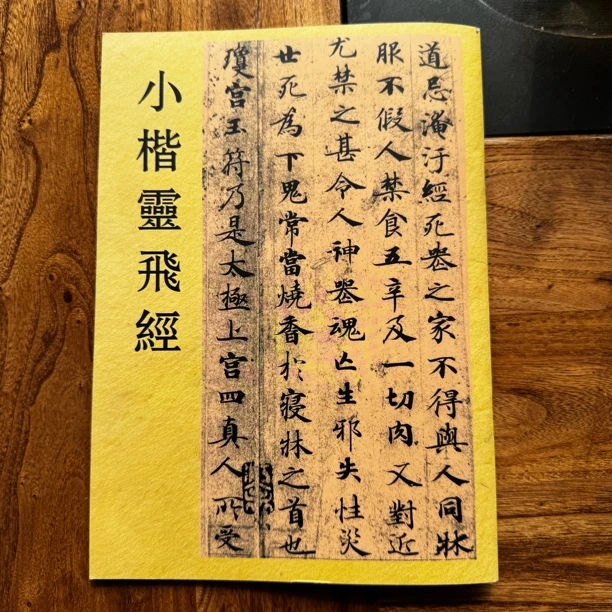 小楷靈飛經
道忌淹汙經死喪之家不得與人同牀
服不假人禁食五辛及一切肉又對近
尤禁之甚令人神喪魂亡生邪失性災
世死為下鬼常當燒香於寢牀之首也
瓊宮玉符乃是太極上宮四真人所受